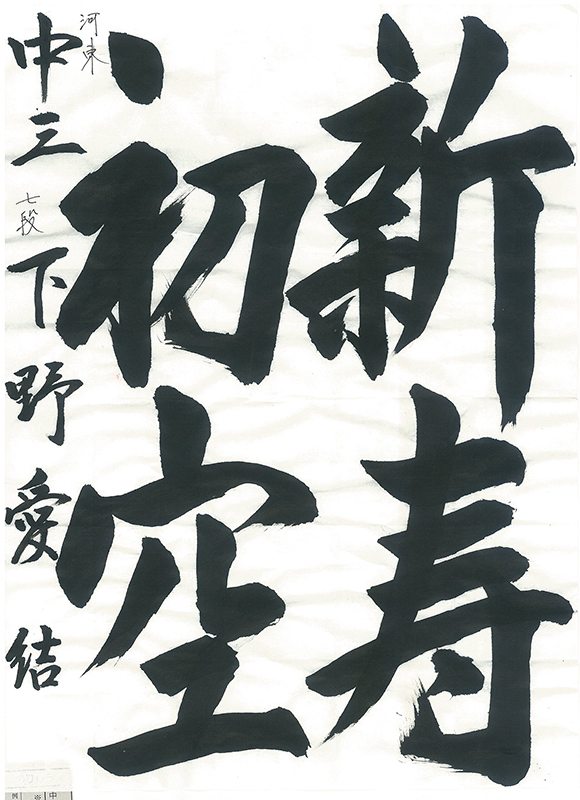 新寿
初空
河東
中三 七段 下野愛結